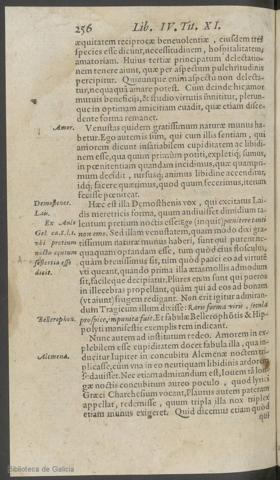 256 Lib. IV. Tit. XI.
æquitatem reciprocæ beneuolentiæ, eiusdem tres
species esse dicunt, necessitudinem, hospitalitatem,
amatoriam. Huius tertiæ principatum delectatio-
nem tenere aiunt, quæ per aspectum pulchritudinis
percipitur. Quicunque enim aspectu non delecta-
tur, nequaquã amare potest. Cum deinde hic amor
mutuis beneficijs, & studio virtutis innititur, plerun-
que in optimam amicitiam euadit, quæ etiam disce-
dente forma remanet.
Amor.
Venustas quidem gratissimum naturæ munus ha-
betur. Ego autem is sum, qui cum illis sentiam, qui
amorem dicunt insatiabilem cupiditatem ac libidi-
nem esse, qua quum primùm potiti, expletiq́; sumus,
in pœnitentiam quandam incidimus, quæ quampri-
mum decidit, rursusq́; animus libidine accenditur,
idq́; facere quærimus, quod quum fecerimus, iterum
fecisse pœnitet.
Demosthenes.
Lais.
Ex Aulo
Gel. ca. 8. l. 1.
vbi pretium
noctis centum
sestertia esse
dicit.
Hæc est illa Demosthenis vox, qui excitatus Lai-
dis meretricis forma, quum audiuisset dimidium ta-
lentum pretium noctis esse: Ego (inquit) pœnitere tanti
non emo. Sed illam venustatem, quam modo dixi gra-
tissimum naturæ munus haberi, sunt qui putent ne-
quaquam optandam esse, tum quòd eius flosculus,
quàm breuissimus sit, tum quòd pauci eo ad virtutẽ
vti queant, quando prima illa ætas mollis admodum
sit, facileque decipiatur. Plures enim sunt qui pueros
in illecebras propellant, quàm qui ad eos ad bonam
(vt aiunt) frugem redigant. Non erit igitur admiran-
dum Tragicum illum dixisse: Raro forma viris, secula
Bellerophõ.
prospice, impunita fuit. Et fabulæ Bellerophõtis & Hip-
polyti manifestis exemplis rem indicant.
Nunc autem ad institutum redeo. Amorem in ex-
plebilem esse cupiditatem docet fabula illa, qua in-
Alcmena.
ducitur Iupiter in concubitu Alcmenæ noctem tri-
plicasse, cùm vna in eo neutiquam libidinis ardorem
Nec etiam admirandum est, Iouem tã lon-
gæ noctis concubinum aureo poculo, quod lyrici
Græci Charchesium vocant, Plautus autem pateram
appellat, redemisse, quum tripla illa nox triplex
etiam munus exigeret. Quid dicemus etiam quòd
qui
Biblioteca de Galicia